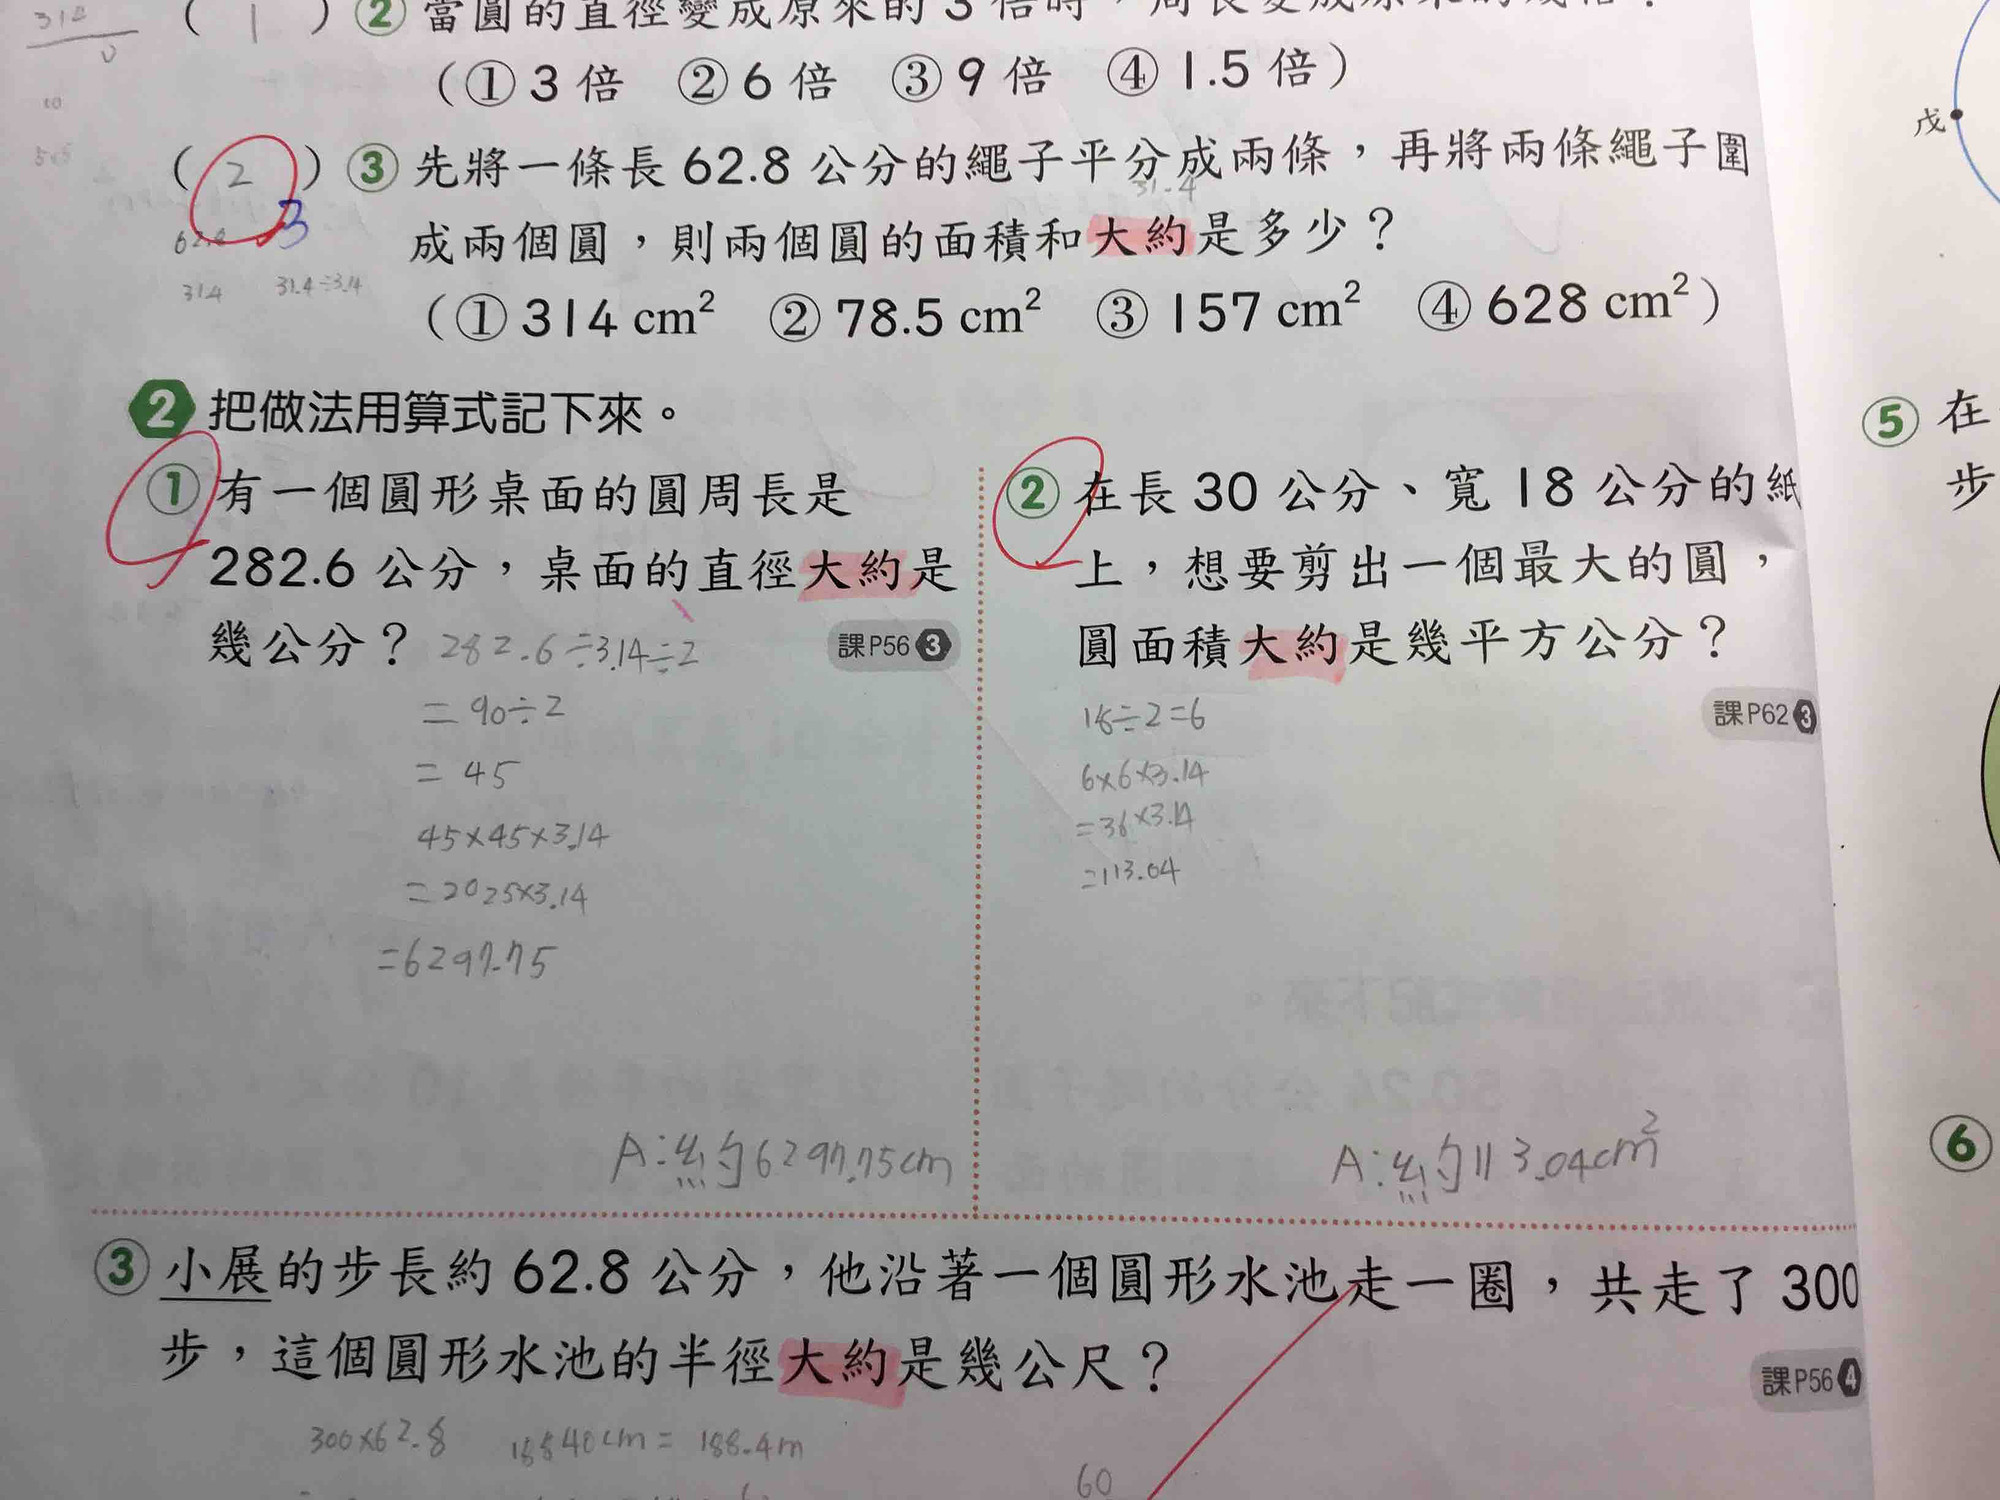 314
0
( 1 ) ② 當圓的直徑變成原來的 3 倍時，周長變成原來的幾倍？
(① 3 倍 ② 6 倍 ③ 9 倍 ④ 1.5 倍)
( 2 ) ③ 先將一條長 62.8 公分的繩子平分成兩條，再將兩條繩子圍
31.4
3
成兩個圓，則兩個圓的面積和大約是多少？
62.8
314 31.4÷3.14
(① 314 cm² ② 78.5 cm² ③ 157 cm² ④ 628 cm²)
2 把做法用算式記下來。
① 有一個圓形桌面的圓周長是
282.6 公分，桌面的直徑大約是
幾公分？ 282.6÷3.14÷2
課P56 3
=90÷2
=45
45×45×3.14
=2025×3.14
=6297.75
A:約6297.75cm
② 在長 30 公分、寬 18 公分的紙
上，想要剪出一個最大的圓，
圓面積大約是幾平方公分？
課P62 3
18÷2=6
6×6×3.14
=36×3.14
=113.04
A:約113.04cm²
③ 小展的步長約 62.8 公分，他沿著一個圓形水池走一圈，共走了 300
步，這個圓形水池的半徑大約是幾公尺？
課P56 4
300×62.8 18840cm=188.4m
60
戊
⑤ 在
步
⑥